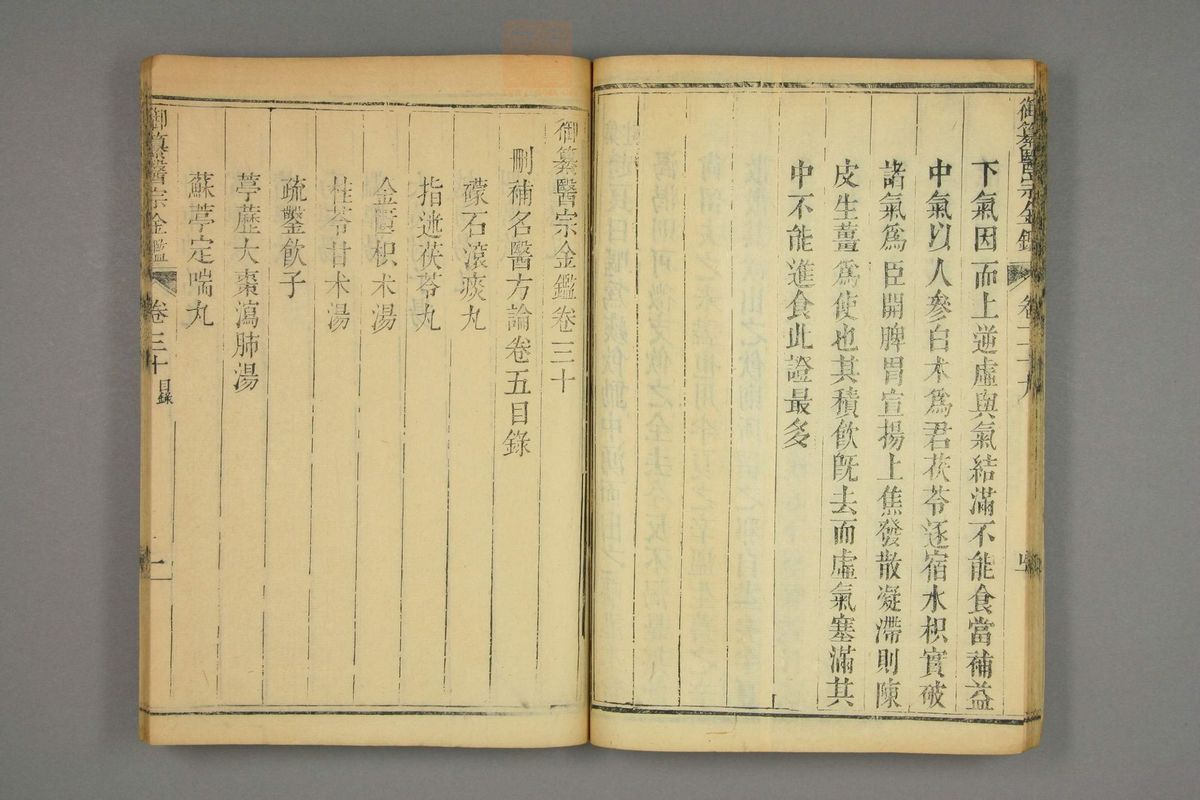 御纂醫宗金鑑
卷二十九
下氣因而上逆虛與氣結滿不能食當補益
中氣以人參白术為君茯苓逐宿水枳實破
諸氣爲臣開脾胃宣揚上焦發散凝滯則陳
皮生薑爲使也其積飲既去而虛氣塞滿其
中不能進食此證最多
御纂醫宗金鑑卷三十
刪補名醫方論卷五目錄
礞石滾痰丸
指迷茯苓丸
金匱枳术湯
桂苓甘术湯
疏鑿飲子
葶藶大棗瀉肺湯
蘇葶定喘丸
御纂醫宗金鑑
卷三十
目錄
一